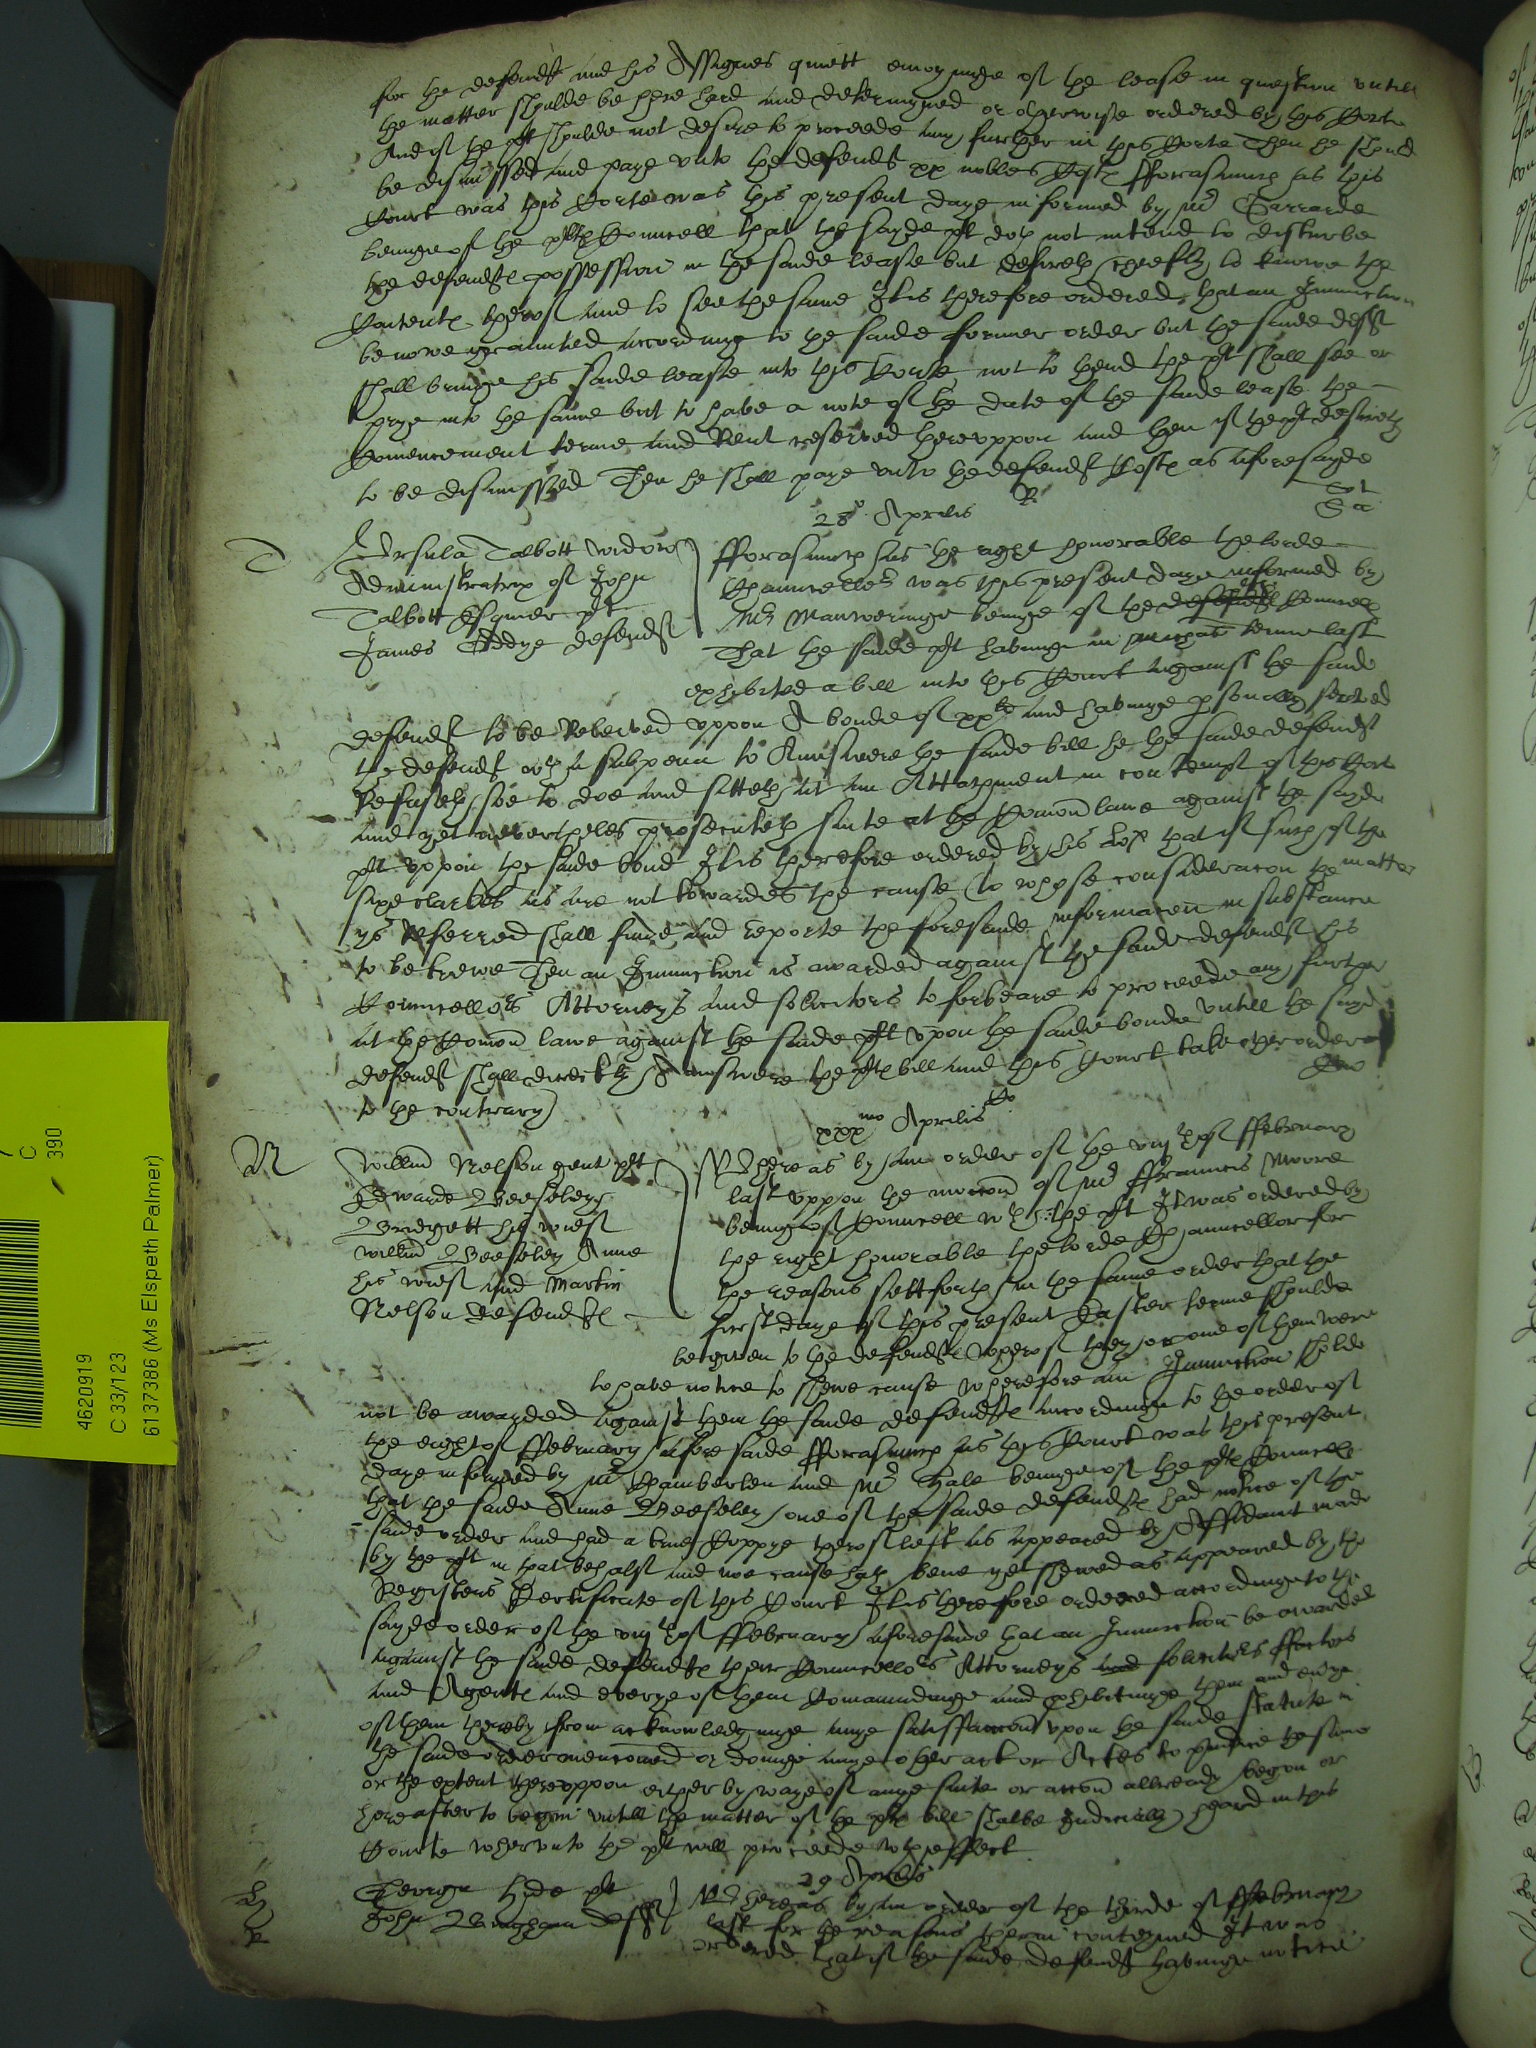 for the defend^t and his Assignes quiett enioyinge of the lease in question untill
the matter shoulde be here hard and determyned or otherwise ordered by this Corte
And if the plt shoulde not desire to proceede any further in this Corte Then he should
be dismissed and paye unto the defend^t xx nobles Costs fforasmuch as this
Court was this Corte was this present daye informed by M^r Garrarde
beinge of the plts Councell that the sayde plt doth not intend to disturbe
the defend^ts possession in the saide lease but desireth cheefly to knowe the
Contents therof and to see the same It is therefore ordered that an Iniunction
be nowe graunted accordinge to the saide former order but the saide deft
shall bringe his saide lease into this Courte not to thend the plt shall see or
prye into the same but to have a note of the date of the saide lease the
Comencement terme and Rent reserved thereuppon and then if the plt desireth
to be dismissed Then he shall paye unto the defend^t Costs as aforesayde
28° Aprilis
Ursula Talbott widow
Administratrix of John
Talbott Esquier plt
James defend^t
fforasmuch as the right honorable the lorde
Chauncello^r was this present daye informed by
M^r Manweringe beinge of the defend^ts Councell
That the saide plt havinge in terme last
exhibited a bill into this Court against the saide
defend^t to be Releived uppon A bonde of xx^li and havinge personally served
the defend^t wth a subpena to Answere the saide bill he the saide defend^t
Refuseth soe to doe and sitteth at an Attachment in contempt of this Corte
and yet neverthelesse prosecuteth suite at the Comon lawe against the sayde
plt uppon the saide bond It is therefore ordered by his Lop that if such of the
sixe clarkes as are not towardes the cause to whose consideracon the matter
ys Referred shall finde and reporte the foresaide informacon in substance
to be trewe Then an Iniunction is awarded against the saide defend^t his
Councello^rs Attorneys and solicitors to forbeare to proceede any further
at the Comon lawe against the saide plt upon the saide bonde untill the saide
defend^t shall directly Answere the plts bill and this Court take other order
to the contrary
xxx^mo Aprilis
Willm Nelson gent plt
Edwarde Beeseley
Bridgett his wief
Willm Beeseley Anne
his wief and Martin
Nelson defend^ts
Whereas by an order of the viij^th of ffebruary
last uppon the mocon of M^r ffrauncis Moore
beinge of Councell wth the plt It was ordered by
the right honorable the lorde Chauncellor for
the reasons sett forth in the same order that the
first daye of this present Easter terme shoulde
be given to the defend^ts wherof they or one of them were
to have notice to shewe cause wherefore an Iniunction sholde
not be awarded against them the saide defend^ts accordinge to the order of
the eight of ffebruary aforesaide fforasmuch as this Court was this present
daye informed by M^r Chamberlen and M^r Hale beinge of the plts Councell
that the saide Anne Beeseley one of the saide defend^ts had notice of the
saide order and had a true Coppye therof left as appeared by Affidavit made
by the plt in that behalf and noe cause hath bene yet shewed as appeared by the
Registers Certificate of this Court It is therefore ordered accordinge to the
sayde order of the viij^th of ffebruary aforesaide that an Iniunction be awarded
against the saide defend^ts their Councello^rs Attorneys and solicitors ffactors
and Agents and everye of them Comaundinge and prohibitinge them and everye
of them thereby from acknowledginge anye satisfaccon upon the saide statute in
the saide order mencioned or doinge anye other act or Actes to preiudice the same
or the extent thereuppon either by waye of anye suite or accon allready begon or
hereafter to begin untill the matter of the plts bill shalbe Iudicially heard in this
Courte wherunto the plt will proceede wth effect
29 Aprilis
George Hide plt
John Bingham deft
Whereas by an order of the thirde of ffebruary
last for the reasons therin conteyned It was
ordered that if the saide defend^t havinge notice
7
C
390
4620919
C 33/123
6137386 (Ms Elspeth Palmer)